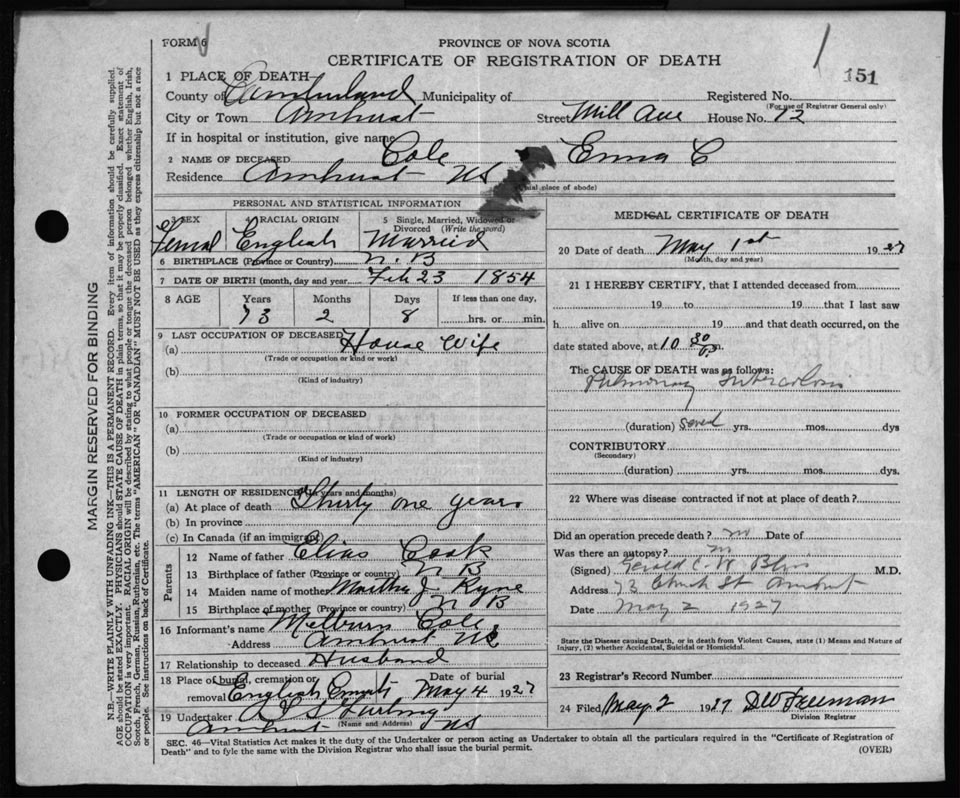 FORM 6
PROVINCE OF NOVA SCOTIA
CERTIFICATE OF REGISTRATION OF DEATH
151
1 PLACE OF DEATH
County of Cumberland Municipality of Registered No.
(For use of Registrar General only)
City or Town Amherst Street Mill Ave House No. 12
If in hospital or institution, give name
2 NAME OF DECEASED Cole Emma C
Residence Amherst NS
(Usual place of abode)
PERSONAL AND STATISTICAL INFORMATION
3 SEX 4 RACIAL ORIGIN 5 Single, Married, Widowed or Divorced (Write the word)
Femal English Married
6 BIRTHPLACE (Province or Country) N. B
7 DATE OF BIRTH (month, day and year) Feb 23 1854
8 AGE Years Months Days If less than one day,
73 2 8 hrs. or min.
9 LAST OCCUPATION OF DECEASED
(a) House Wife
(Trade or occupation or kind of work)
(b)
(Kind of industry)
10 FORMER OCCUPATION OF DECEASED
(a)
(Trade or occupation or kind of work)
(b)
(Kind of industry)
11 LENGTH OF RESIDENCE (In years and months)
(a) At place of death Thirty one years
(b) In province
(c) In Canada (if an immigrant)
Parents
12 Name of father Elias Cook
13 Birthplace of father (Province or country) N B
14 Maiden name of mother Martha J.
15 Birthplace of mother (Province or country) N B
16 Informant's name Melburn Cole
Address Amherst NS
17 Relationship to deceased Husband
18 Place of burial, cremation or removal English Date of burial May 4 1927
19 Undertaker
(Name and Address)
Amherst NS
MEDICAL CERTIFICATE OF DEATH
20 Date of death May 1st 1927
(Month, day and year)
21 I HEREBY CERTIFY, that I attended deceased from
19 to 19 that I last saw
h alive on 19 and that death occurred, on the
date stated above, at 10 30 m.
The CAUSE OF DEATH was as follows:
Pulmonary tuberculosis
(duration) yrs. mos. dys
CONTRIBUTORY
(Secondary)
(duration) yrs. mos. dys.
22 Where was disease contracted if not at place of death?
Did an operation precede death? Date of
Was there an autopsy?
(Signed) Gerald C. W. Bliss M.D.
Address 73 Church St Amherst
Date May 2 1927
State the Disease causing Death, or in death from Violent Causes, state (1) Means and Nature of
Injury, (2) whether Accidental, Suicidal or Homicidal.
23 Registrar's Record Number
24 Filed May 2 1927 DW Freeman
Division Registrar
SEC. 46—Vital Statistics Act makes it the duty of the Undertaker or person acting as Undertaker to obtain all the particulars required in the "Certificate of Registration of
Death" and to fyle the same with the Division Registrar who shall issue the burial permit.
(OVER)
MARGIN RESERVED FOR BINDING
N.B.—WRITE PLAINLY WITH UNFADING INK—THIS IS A PERMANENT RECORD. Every item of information should be carefully supplied.
AGE should be stated EXACTLY. PHYSICIANS should STATE CAUSE OF DEATH in plain terms, so that it may be properly classified. Exact statement of
OCCUPATION is very important. RACIAL ORIGIN will be described by stating to what people or tongue the deceased person belonged whether English, Irish,
Scotch, French, German, Russian, Ruthenian, etc. The terms "AMERICAN" OR "CANADIAN" MUST NOT BE USED as they express citizenship but not a race
or people. See instructions on back of Certificate.